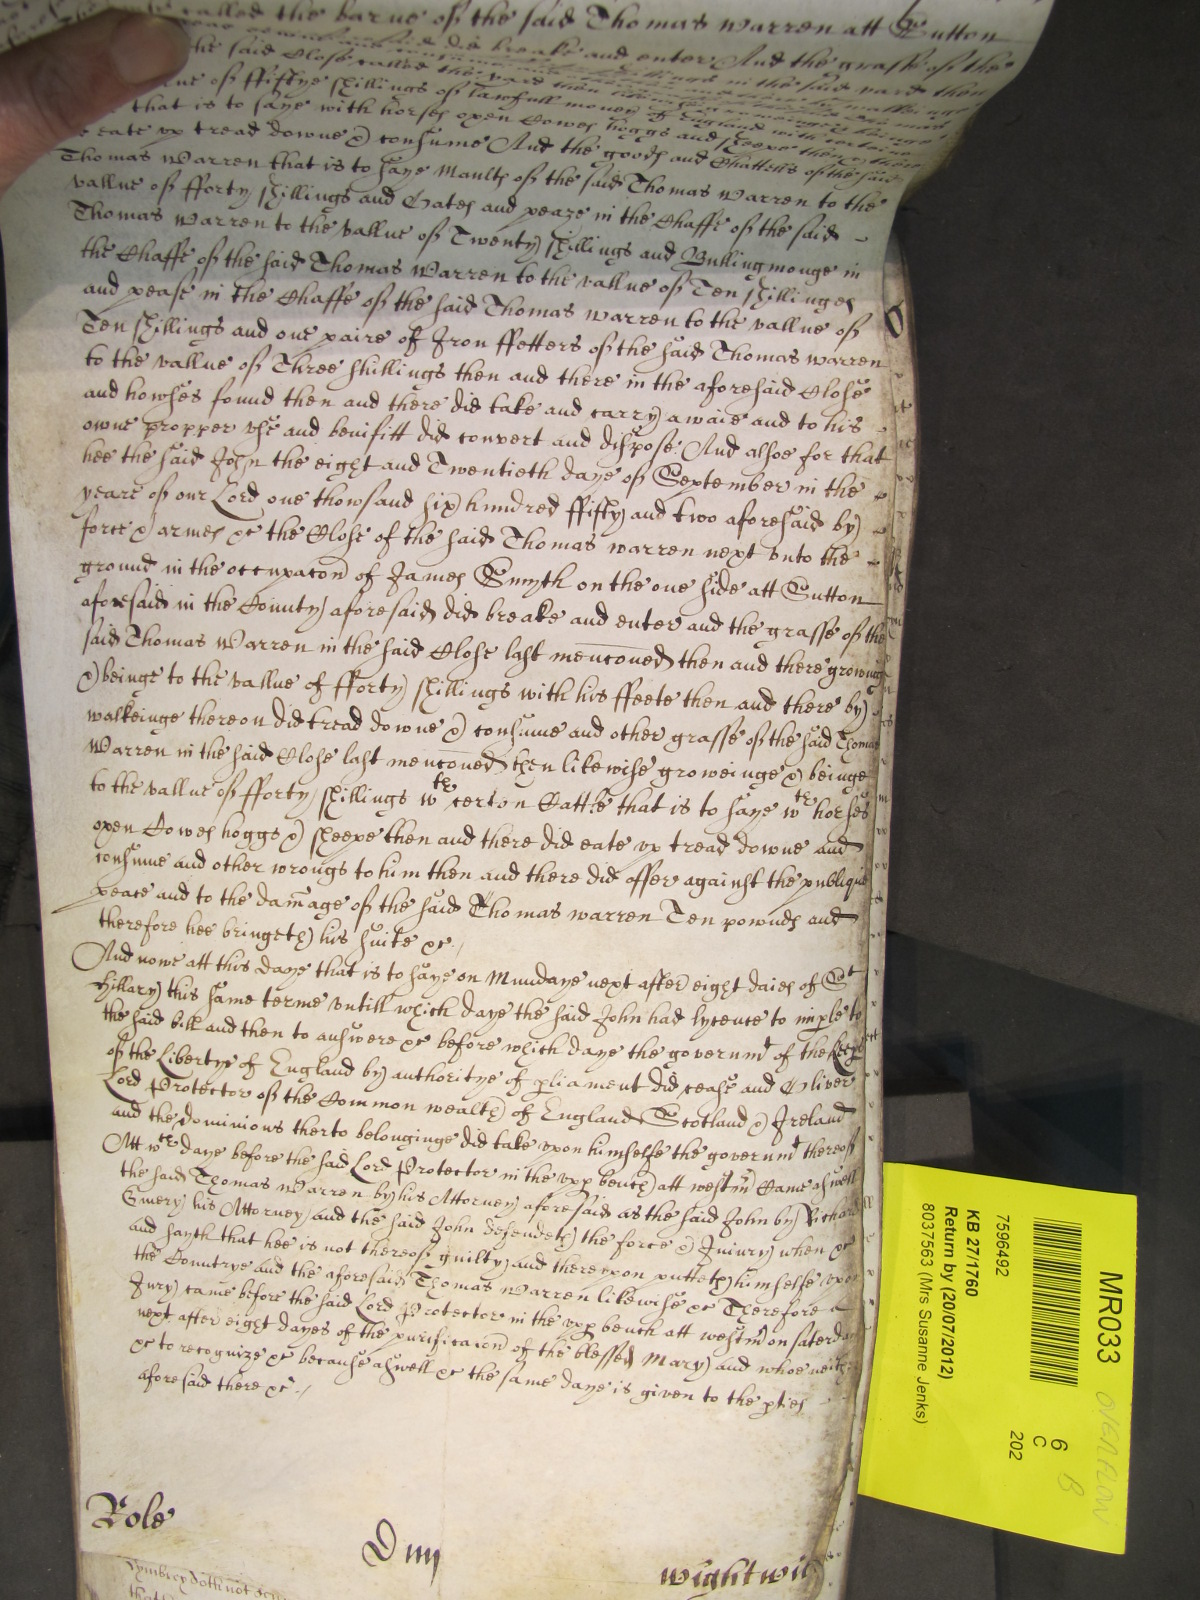 called the barne of the said Thomas Warren att Sutton
did breake and enter And the grasse of the
the said Close called the yard then
vallue of ffiftye shillings of lawfull money of England with certaine
that is to saye with horses oxen Cowes hoggs and sheepe then & there
eate vp tread downe & consume And the goods and Chattells of the said
Thomas Warren that is to saye Maulte of the said Thomas Warren to the
vallue of fforty shillings and Oates and pease in the Chaffe of the said
Thomas Warren to the vallue of Twenty shillings and Bullingmonge in
the Chaffe of the said Thomas Warren to the vallue of Ten shillinges
and pease in the Chaffe of the said Thomas Warren to the vallue of
Ten shillings and one paire of Iron ffetters of the said Thomas Warren
to the vallue of Three shillings then and there in the aforesaid Close
and howses found then and there did take and carry awaie and to his
owne propper vse and benifitt did convert and dispose And alsoe for that
hee the said John the eight and Twentieth daye of September in the
yeare of our Lord one thowsand six hundred ffifty and two aforesaid by
force & armes &c the Close of the said Thomas Warren next vnto the
ground in the occupacon of James Smyth on the one side att Sutton
aforesaid in the County aforesaid did breake and enter and the grasse of the
said Thomas Warren in the said Close last mencouned then and there growing
& beinge to the vallue of fforty shillings with his ffeete then and there by
walkeinge thereon did tread downe & consume and other grasse of the said Thomas
Warren in the said Close last mencouned then likewise groweinge & beinge
to the vallue of fforty shillings wth certen Cattle that is to saye wth horses
oxen Cowes hoggs & sheepe then and there did eate vp tread downe and
consume and other wrongs to him then and there did offer against the publique
peace and to the damage of the said Thomas Warren Ten pownds and
therefore hee bringeth his suite &c.
And nowe att this daye that is to saye on Mundaye next after eight daies of St
Hillary this same terme vntill which daye the said John had lycence to imple to
the said bill and then to answere &c before which daye the governmt of the
of the Libertye of England by authoritye of pliament did cease and Oliver
Lord Protector of the Common wealth of England Scotland & Ireland
and the dominions therto belonginge did take vpon himselfe the governmt thereof
Att wch daye before the said Lord Protector in the vpp bench att westm Came aswell
the said Thomas Warren by his Attorney aforesaid as the said John by Richard
Emery his Attorney and the said John defendeth the force & Iniury when &c
and sayth that hee is not thereof guilty and therevpon putteth himselfe vpon
the Countrye and the aforesaid Thomas Warren likewise &c Therefore a
Jury came before the said Lord Protector in the vpp bench att westm on saterday
next after eight dayes of the purificacon of the blessed Mary and whoe neither
&c to recognize &c because aswell &c the same daye is given to the pties
aforesaid there &c.
Role
wightwic
doth not
MR033
7596492
KB 27/1760
Return by (20/07/2012)
8037563 (Mrs Susanne Jenks)
6
C
202
OVERFLOW
B